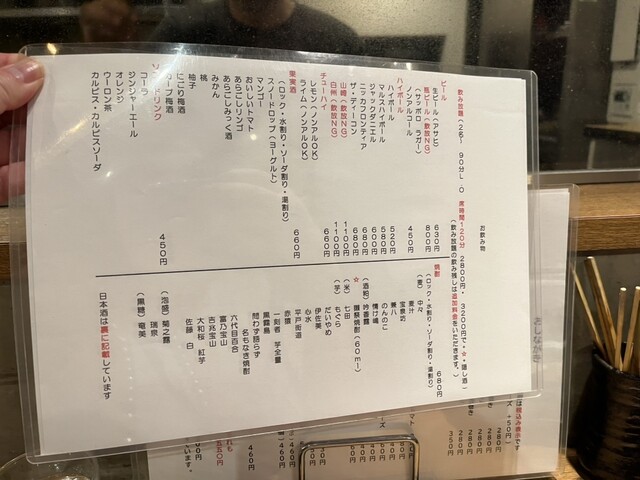 お飲み物
飲み放題（2名〜 90分L.O 席時間120分 2800円・3200円で・☆・隠し酒）
（飲み放題の飲み残しは追加料金をいただきます。）
ビール
生ビール（アサヒ） 630円
瓶ビール（飲放NG） 800円
（サッポロ ラガー）
ノンアルコール 450円
ハイボール
ハイボール 520円
マルスハイボール 580円
ジャックダニエル 600円
ニッカフロンティア 680円
ザ・ディーコン 680円
山崎（飲放NG） 1100円
白州（飲放NG） 1100円
チューハイ 660円
レモン（ノンアルOK）
ライム（ノンアルOK）
果実酒 660円
（ロック・水割り・ソーダ割り・湯割り）
スノードロップ（ヨーグルト）
マンゴー
おいしいトマト
あらごしリンゴ
あらごしみっく酒
みかん
桃
柚子
にごり梅酒
ハーブ梅酒
ソフトドリンク 450円
コーラ
ジンジャーエール
オレンジ
ウーロン茶
カルピス・カルピスソーダ
焼酎 680円
（ロック・水割り・ソーダ割り・湯割り）
（麦） 中々
宝泉坊
麦汁
兼八
のんのこ
情け嶋
（酒粕） 吟香露
☆ 獺祭焼酎（60ml）
（米） 七田
（芋） もぐら
だいやめ
伊佐美
心水
平戸街道
赤猿
一刻者 芋全量
黒霧島
問わず語らず
名もなき焼酎
六代目百合
富乃宝山
吉兆宝山
大和桜 紅芋
佐藤 白
（泡盛） 菊之露
瑞泉
（黒糖） 奄美
日本酒は裏に記載しています
おしながき